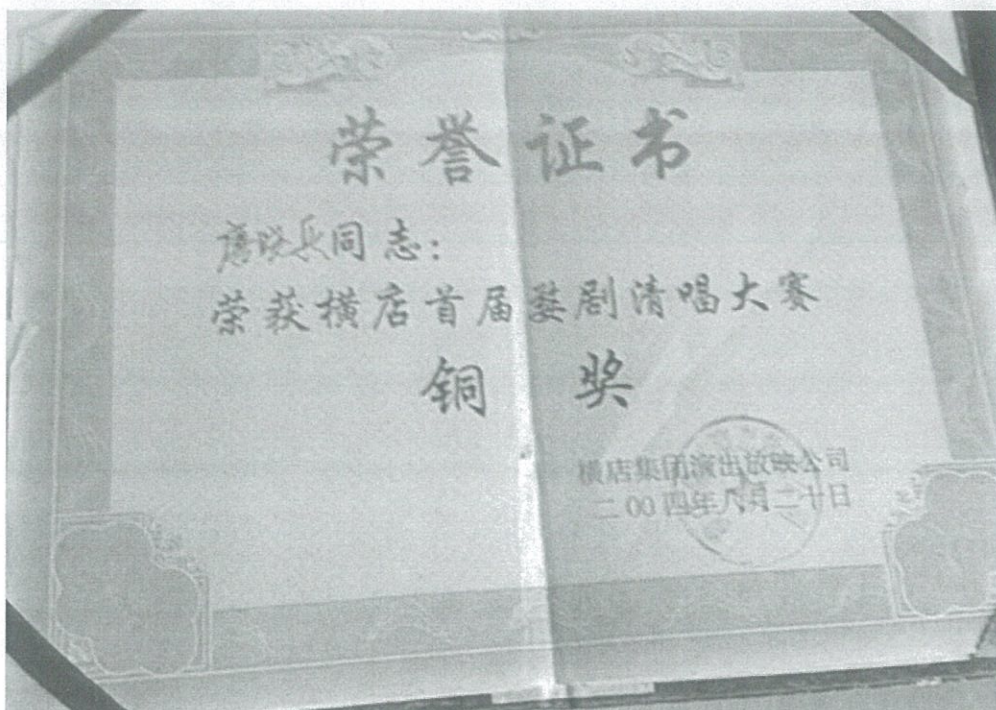 荣誉证书
唐晓兵同志：
荣获横店首届婺剧清唱大赛
铜 奖
横店集团演出放映公司
二00四年八月二十日